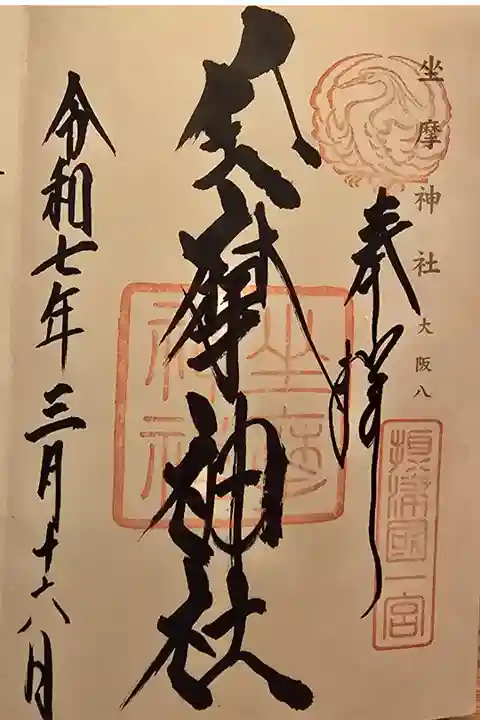 坐摩神社 大阪八
奉拝
摂津國一宮
坐摩神社
坐摩神社
令和七年三月十六日